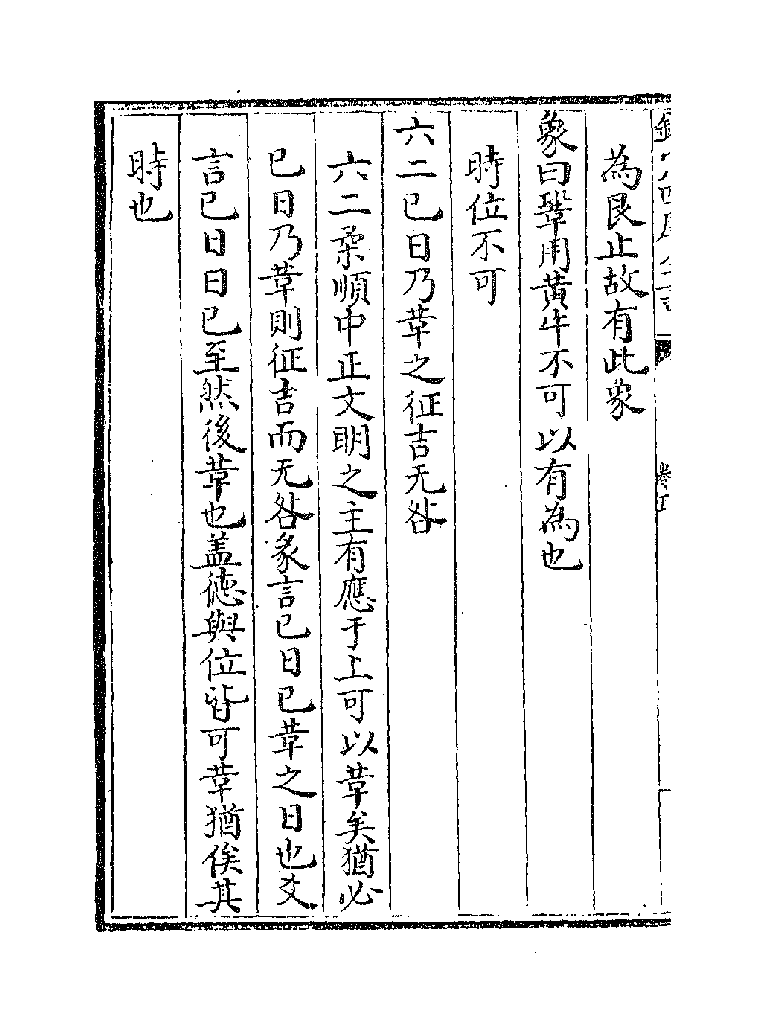 為艮止故有此象
象曰鞏用黄牛不可以有為也
時位不可
六二已日乃革之征吉无咎
六二柔順中正文明之主有應于上可以革矣猶必
已日乃革則征吉而无咎彖言已日已革之日也爻
言已日日已至然後革也盖德與位皆可革猶俟其
時也